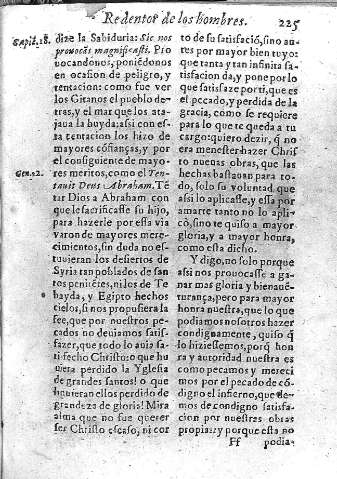 Redentor de los hombres. 225
Capit. 18.
dize la Sabiduria: Sic nos
prouocãs magnificasti. Pro
uocandonos, poniẽdonos
en ocasion de peligro, y
tentacion: como fue ver
los Gitanos el pueblo de-
tras, y el mar que los ata-
jaua la huyda: assi con es-
ta tentacion los hizo de
mayores cõfianças, y por
el consiguiente de mayo-
Gen. 22.
res meritos, como el Ten-
tauit Deus Abraham. Tẽ
tar Dios a Abraham con
que le sacrificasse su hijo,
para hazerle por essa via
varon de mayores mere-
cimientos, sin duda no es-
tuuieran los desiertos de
Syria tan poblados de san
tos penitẽtes, ni los de Te
bayda, y Egipto hechos
cielos, si nos propusiera la
fee, que por nuestros pe-
cados no deuiamos satis-
fazer, que todo lo auia sa-
tisfecho Christo: o que hu
uiera perdido la Yglesia
de grandes santos! o que
huuieran ellos perdido de
grandeza de gloria! Mira
alma que no fue querer
ser Christo escaso, ni cor
to de su satisfació, sino an-
tes por mayor bien tuyo:
que tanta y tan infinita sa-
tisfacion da, y pone por lo
que satisfaze por ti, que es
el pecado, y perdida de la
gracia, como se requiere
para lo que te queda a tu
cargo: quiero dezir, q̃ no
era menester hazer Chris
to nueuas obras, que las
hechas bastauan para to-
do, solo su voluntad que
assi lo aplicasse, y essa por
amarte tanto no lo apli-
cò, sino te quiso a mayor
gloria, y a mayor honra,
como esta dicho.
Y digo, no solo porque
assi nos prouocasse a ga-
nar mas gloria y bienaue-
turança, pero para mayor
honra nuestra, que lo que
podiamos nosotros hazer
condignamente, quiso q̃
lo hiziessemos, porq̃ hon
ra y autoridad nuestra es
como pecamos y mereci
mos por el pecado de cõ-
digno el infierno, que de-
mos de condigno satisfa-
cion por nuestras obras
propias: y porque esta no
Ff podia-